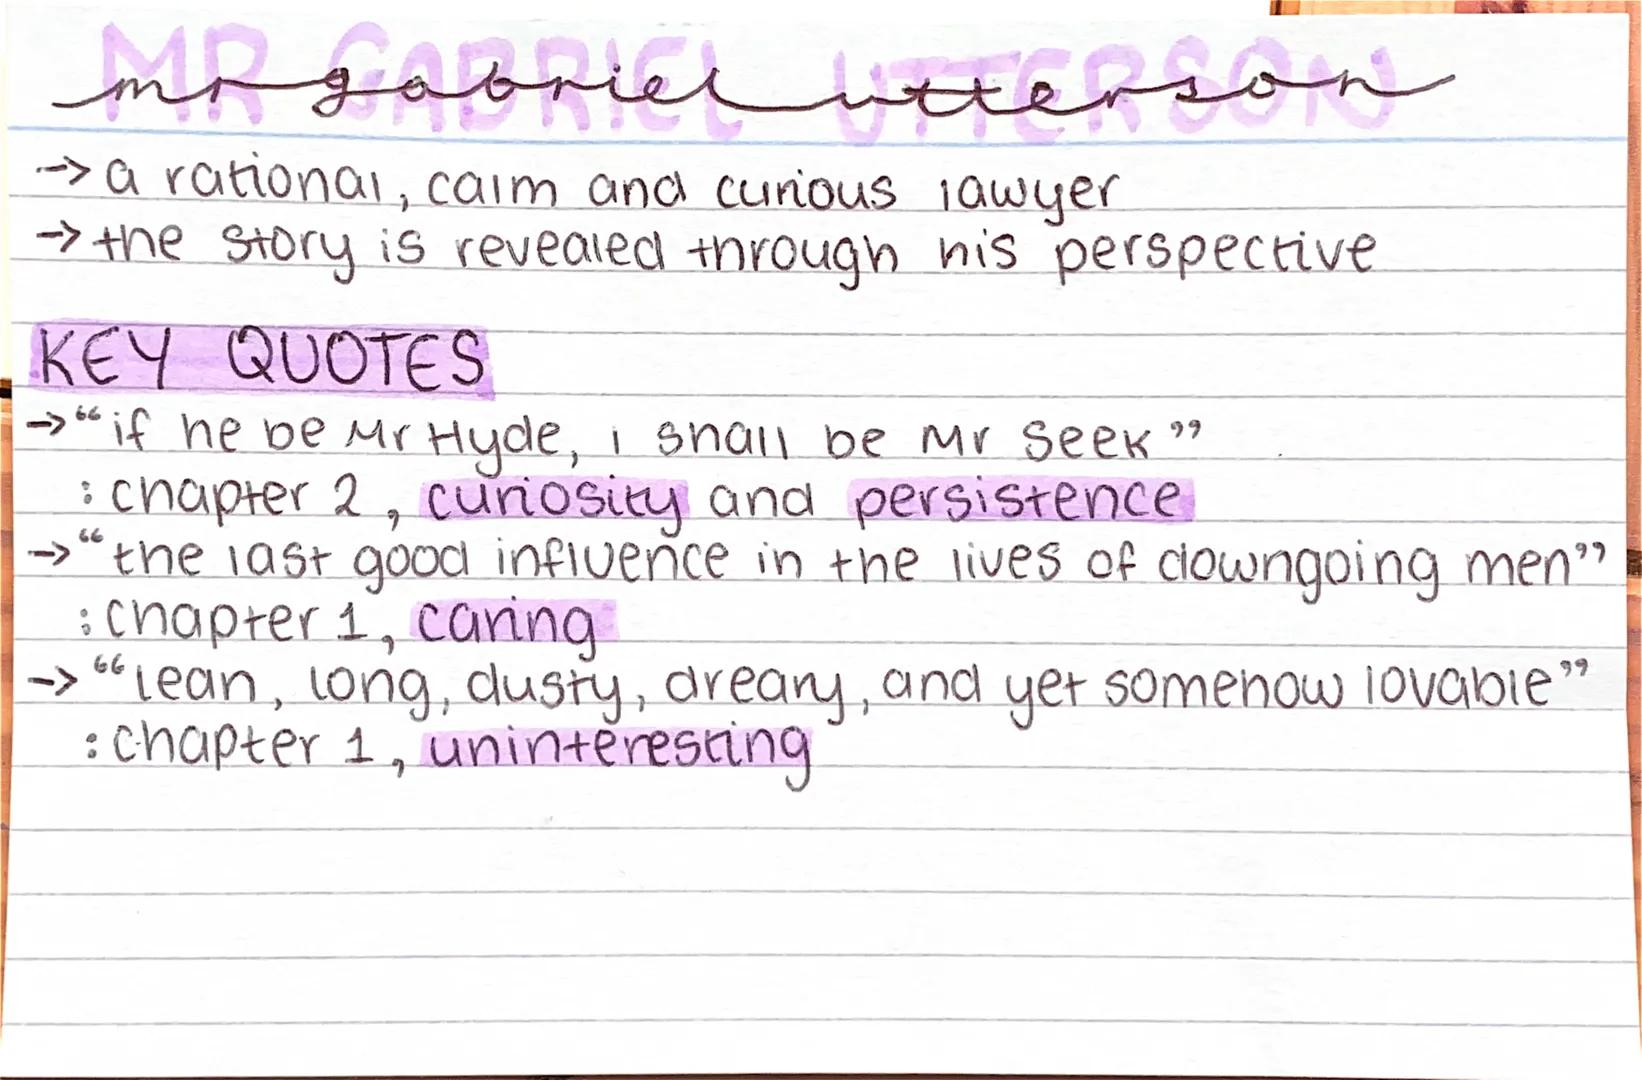 MR GABRIEL UTTERSON
mr gabriel utterson
-> a rational, calm and curious lawyer
-> the story is revealed through his perspective
KEY QUOTES
-> “if he be Mr Hyde, i shall be Mr Seek”
: chapter 2, curiosity and persistence
-> “the last good influence in the lives of downgoing men”
: chapter 1, caring
-> “lean, long, dusty, dreary, and yet somehow lovable”
: chapter 1, uninteresting